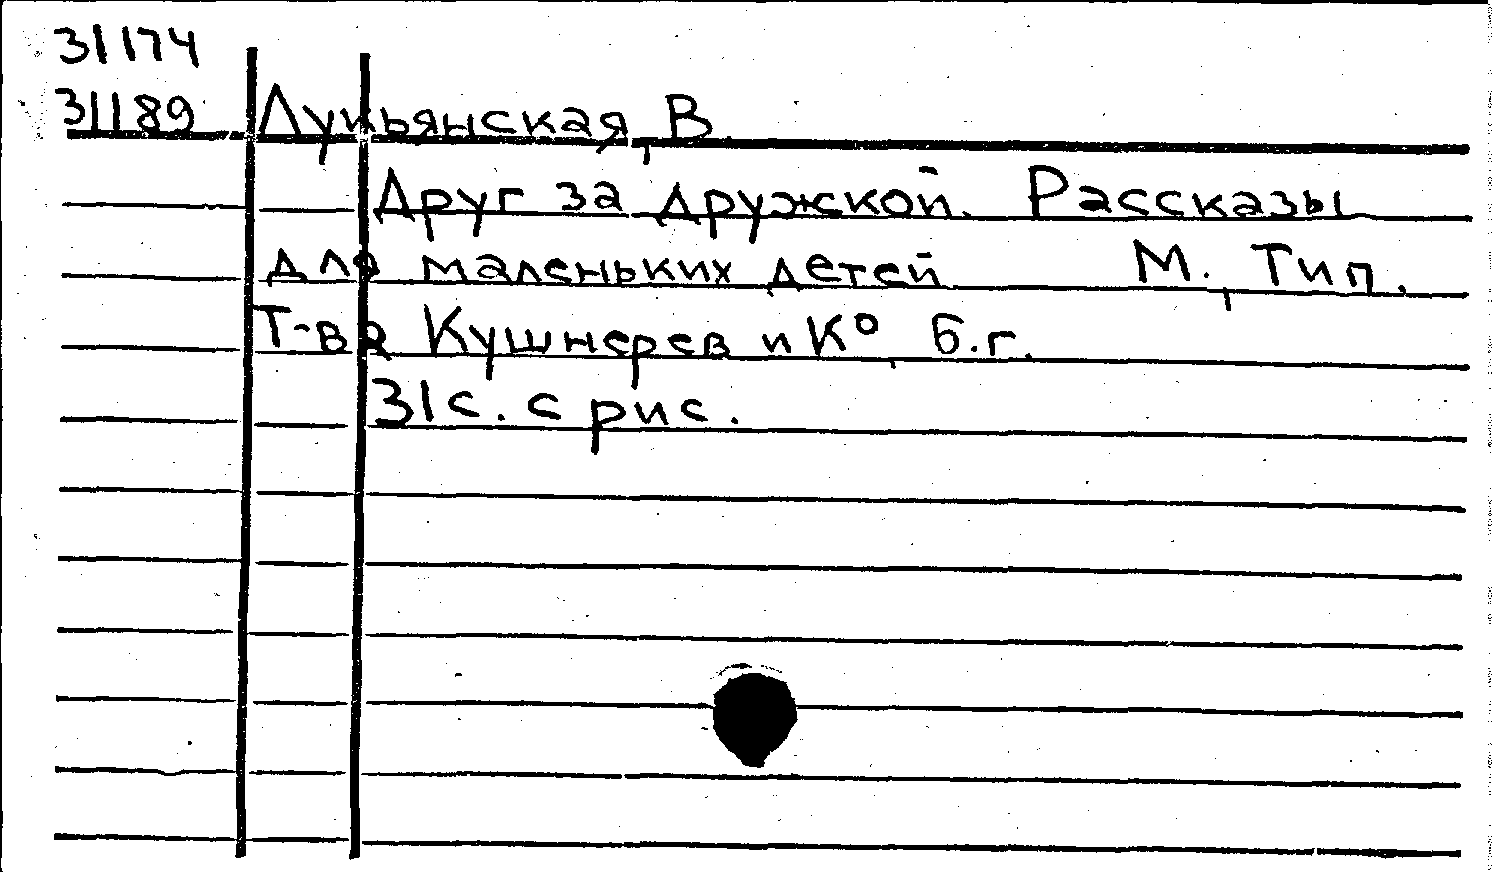 31174
31189 Лукьянская, В
Друг за дружкой. Рассказы
для маленьких детей М., Тип.
Т-ва Кушнерев и К° б.г.
31 с. с рис.